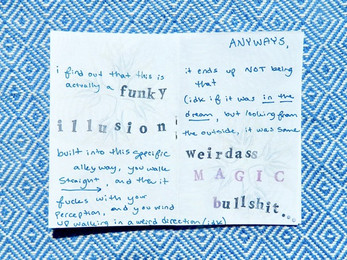 i find out that this is
actually a funky
illusion
built into this specific
alleyway, you walk
straight, and then it
fuckes with your
perception, and you wind
up walking in a weird direction (idk)
ANYWAYS,
it ends up NOT being
that
(idk if it was in the
dream, but looking from
the outside, it was some
weirdass
MAGIC
bullshit...